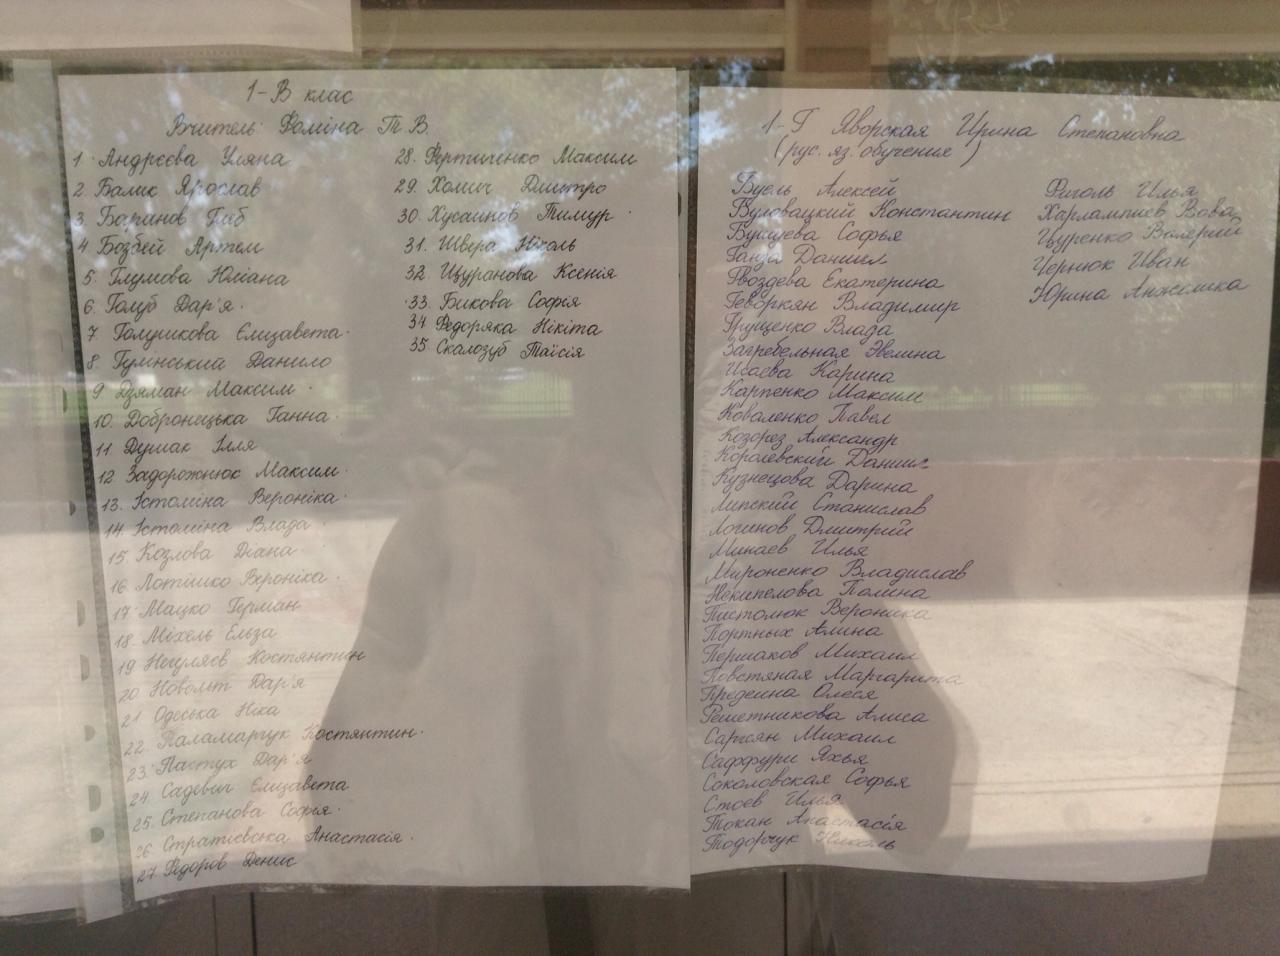 1-В клас
Вчитель: Фоміна Т. В.
1. Андрєєва Уляна
2. Балик Ярослав
3. Баранов Гліб
4. Боздей Артем
5. Глумова Юліана
6. Голуб Дар'я.
7. Голушкова Єлізавета.
8. Гумінський Данило
9. Дзяман Максим.
10. Доброницька Ганна.
11. Душак Ілля
12. Задорожнюк Максим.
13. Істоміна Вероніка.
14. Істоміна Влада.
15. Козлова Діана
16. Лотішко Вероніка.
17. Мацко Герман
18. Міхель Ельза
19. Негуляєв Костянтин
20. Новольт Дар'я
21. Одеська Ніка
22. Паламарчук Костянтин.
23. Пастух Дар'я
24. Садевич Єлізавета
25. Степанова Софья.
26. Стратієвська Анастасія.
27. Федоров Денис
28. Фертиченко Максим
29. Хомич Дмитро
30. Хусаинов Тимур.
31. Швера Ніколь
32. Щуранова Ксенія
33. Бикова Софія
34. Федоряка Нікіта
35. Скалозуб Таїсія
1-Г Яворская Ирина Степановна
(рус. яз. обучения)
Буель Алексей
Буловацкий Константин
Бущуева Софья
Ганза Даниил
Гвоздева Екатерина
Геворкян Владимир
Грущенко Влада
Загребельная Эвелина
Исаева Карина
Карпенко Максим
Коваленко Павел
Козорез Александр
Королевский Даниил
Кузнецова Дарина
Липский Станислав
Логинов Дмитрий
Минаев Илья
Мироненко Владислав
Некипелова Полина
Пистолюк Вероника
Портных Алина
Першаков Михаил
Повстяная Маргарита
Предеина Олеся
Решетникова Алиса
Саргсян Михаил
Саффури Яхья
Соколовская Софья
Стоев Илья
Токан Анастасія
Тодорчук Николь
Фиголь Илья
Харлампиев Вова
Цуренко Валерий
Чернюк Иван
Юрина Анжелика